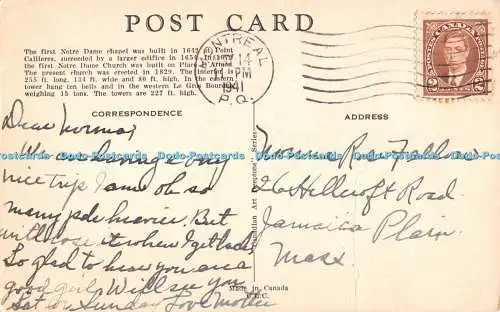 POST CARD
The first Notre Dame chapel was built in 1642 at Point
Callieres, surrended by a larger edifice in 1656. In 1672
the first Notre Dame Church was built on Place d'Armes.
The present church was erected in 1829. The interior is
255 ft. long, 134 ft. wide and 80 ft. high. In the eastern
tower hang ten bells and in the western Le Gros Bourdon
weighing 15 tons. The towers are 227 ft. high.
MONTREAL
14
PM
1941
P.Q.
CANADA
CORRESPONDENCE
ADDRESS
Dear Norma,
We are having a
nice trip I am oh so
many pds heavier. But
will lose it when I get back
So glad to hear you are a
good girl. Will see you
Sat or Sunday Love Mother
Norma R. Fallow
26 Hillcroft Road.
Jamaica Plain.
Mass
Made in Canada
Dodo-Postcards Dodo-Postcards Dodo-Postcards Dodo-Postcards Dodo-Postcards